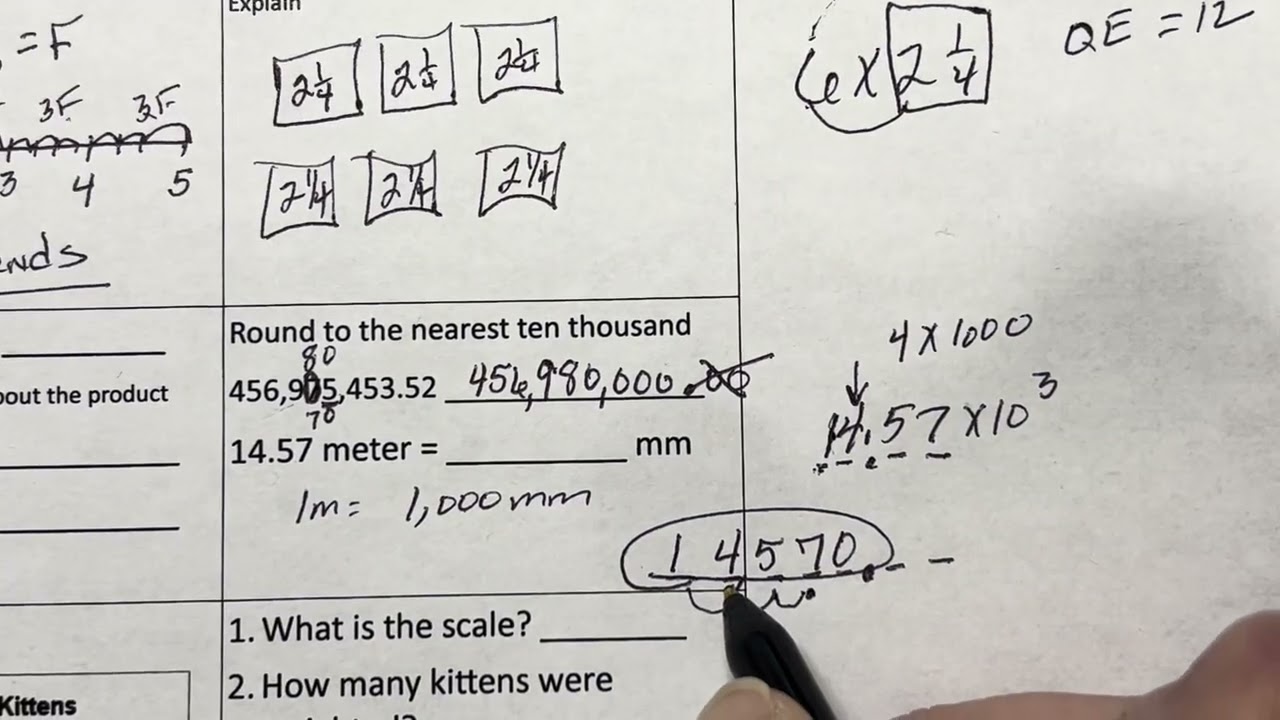 Explain
= F
2 1/4 2 1/4 2 1/4
6 x 2 1/4
QE = 12
3F 3F
3 4 5
2 1/4 2 1/4 2 1/4
ends
Round to the nearest ten thousand
80
456,975,453.52 456,980,000.00
70
out the product
14.57 meter = mm
1m = 1,000mm
4 x 1000
14.57 x 10 3
14570.
1. What is the scale?
2. How many kittens were
Kittens